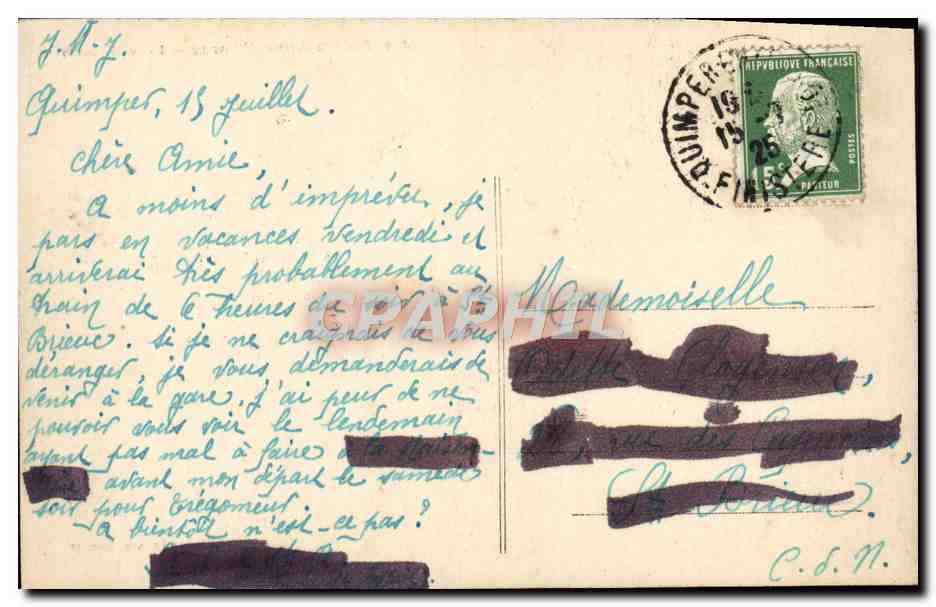 J.M.J.
Quimper, 15 juillet.
Chère Amie,
A moins d'imprévu, je
pars en vacances vendredi et
arriverai très probablement au
train de 6 heures du soir à St
Brieuc. Si je ne craignais de vous
déranger, je vous demanderais de
venir à la gare. J'ai peur de ne
pouvoir vous voir le lendemain
ayant pas mal à faire à la Maison-
avant mon départ le samedi
soir pour Trégomeur.
A bientôt n'est-ce pas?
REPUBLIQUE FRANÇAISE
POSTES
15c
PASTEUR
QUIMPER
19
15
25
FINISTERE
Mademoiselle
Odette
rue des
St Brieuc.
C. d. N.
CPAPHIL